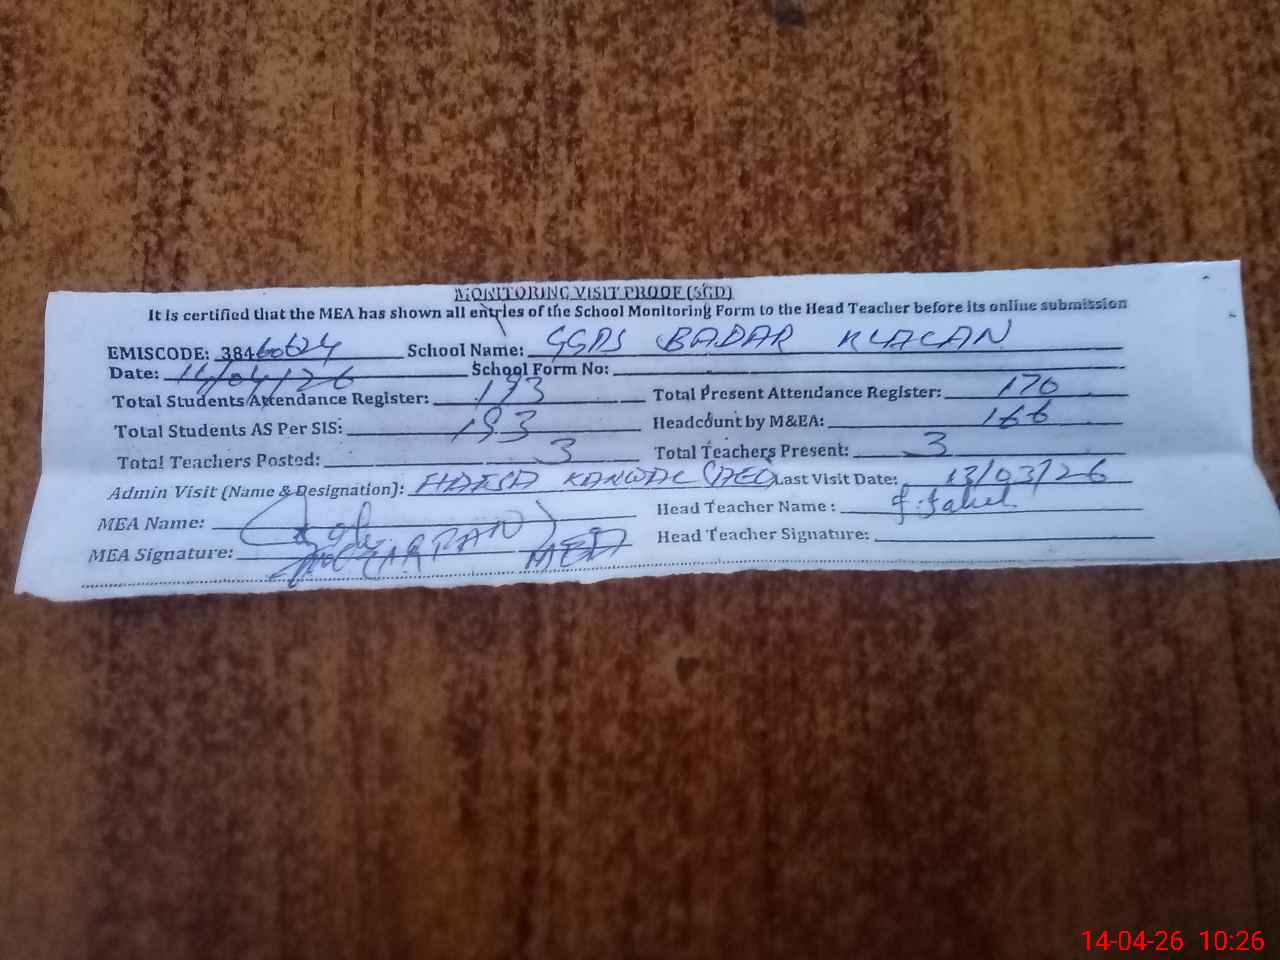 MONITORING VISIT PROOF (SGD)
It is certified that the MEA has shown all entries of the School Monitoring Form to the Head Teacher before its online submission
EMISCODE: 38460624 School Name: GGPS BADAR KLACAN
Date: 14/04/26 School Form No:
Total Students Attendance Register: 193 Total Present Attendance Register: 170
Total Students AS Per SIS: 193 Headcount by M&EA: 166
Total Teachers Posted: 3 Total Teachers Present: 3
Admin Visit (Name & Designation): HAFSA KANWAL (AEO) Last Visit Date: 13/03/26
MEA Name: Head Teacher Name:
MEA Signature: MEA Head Teacher Signature:
14-04-26 10:26